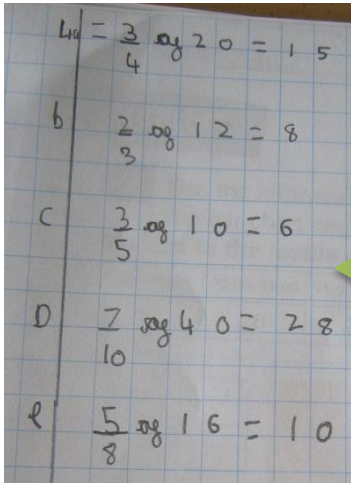 4a = 3/4 of 20 = 15
b 2/3 of 12 = 8
C 3/5 of 10 = 6
D 7/10 of 40 = 28
e 5/8 of 16 = 10